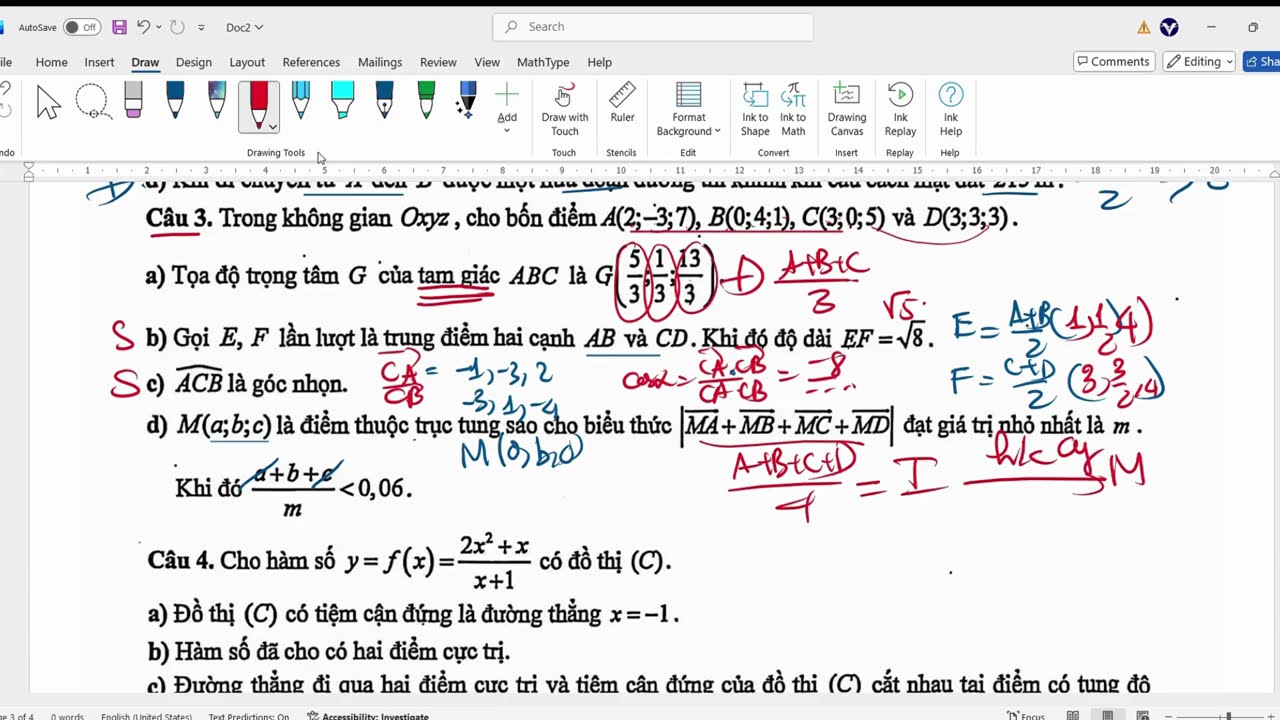 AutoSave Off Doc2 Search
ile Home Insert Draw Design Layout References Mailings Review View MathType Help Comments Editing Sha
Add Draw with Touch Ruler Format Background Ink to Shape Ink to Math Drawing Canvas Ink Replay Ink Help
ndo Drawing Tools Touch Stencils Edit Convert Insert Replay Help
1 2 3 4 5 6 7 8 9 10 11 12 13 14 15 16 17 18 19 20
2
Câu 3. Trong không gian Oxyz, cho bốn điểm A(2;−3;7), B(0;4;1), C(3;0;5) và D(3;3;3).
a) Tọa độ trọng tâm G của tam giác ABC là G(5/3; 1/3; 13/3) Đ A+B+C/3
√5
S b) Gọi E, F lần lượt là trung điểm hai cạnh AB và CD. Khi đó độ dài EF = √8. E = A+B/2 (1, 1/2, 4)
S c) ACB là góc nhọn. CA = -1, -3, 2 cosα = CA.CB/CA CB = -8/... F = C+D/2 (3, 3/2, 4)
CB -3, 1, -4
d) M(a;b;c) là điểm thuộc trục tung sao cho biểu thức |MA + MB + MC + MD| đạt giá trị nhỏ nhất là m.
M(0, b, 0) A+B+C+D/4 = I hk Oy M
Khi đó a+b+c/m < 0,06.
Câu 4. Cho hàm số y = f(x) = 2x²+x/x+1 có đồ thị (C).
a) Đồ thị (C) có tiệm cận đứng là đường thẳng x = −1.
b) Hàm số đã cho có hai điểm cực trị.
c) Đường thẳng đi qua hai điểm cực trị và tiệm cận đứng của đồ thị (C) cắt nhau tại điểm có tung độ
ge 3 of 4 0 words English (United States) Text Predictions: On Accessibility: Investigate Focus